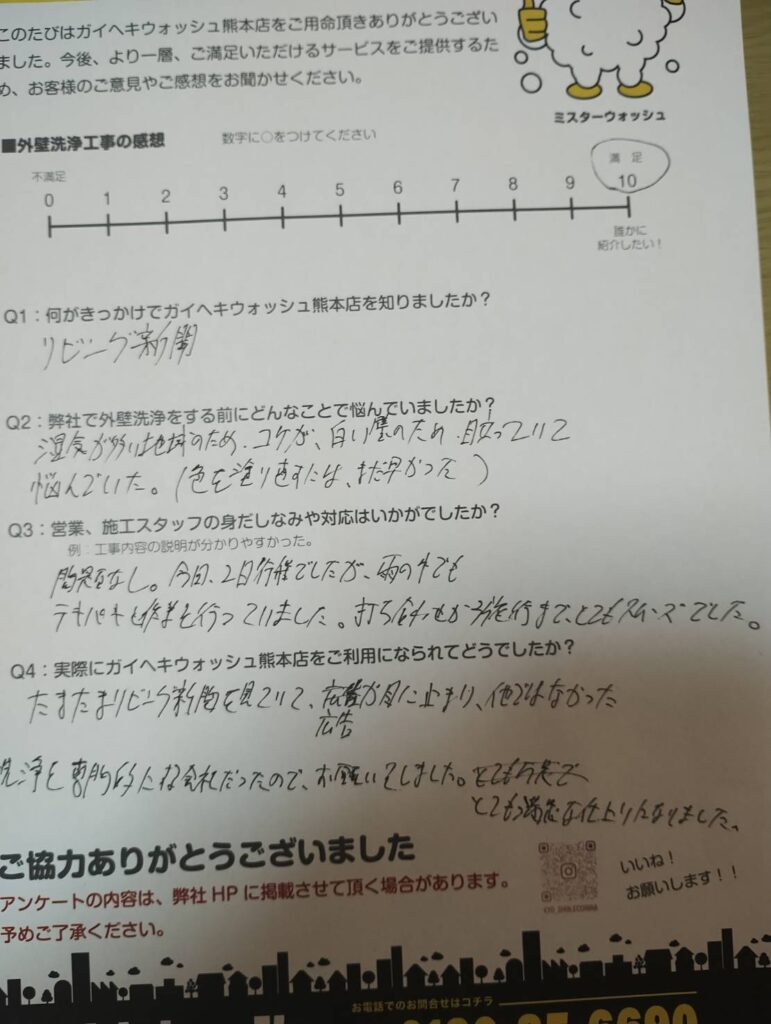 このたびはガイヘキウォッシュ熊本店をご用命頂きありがとうござい
ました。今後、より一層、ご満足いただけるサービスをご提供するた
め、お客様のご意見やご感想をお聞かせください。
ミスターウォッシュ
■外壁洗浄工事の感想 数字に○をつけてください
不満足 満足
0 1 2 3 4 5 6 7 8 9 10
誰かに
紹介したい!
Q1:何がきっかけでガイヘキウォッシュ熊本店を知りましたか?
リビング新聞
Q2:弊社で外壁洗浄をする前にどんなことで悩んでいましたか?
湿気が多い地域のため、コケが、白い壁のため、目立っていて
悩んでいた。(色を塗り直すには、まだ早かった)
Q3:営業、施工スタッフの身だしなみや対応はいかがでしたか?
例:工事内容の説明が分かりやすかった。
問題なし。今回、2日行程でしたが、雨の中でも
テキパキと作業を行っていました。打ち合わせから施行まで、とてもスムーズでした。
Q4:実際にガイヘキウォッシュ熊本店をご利用になられてどうでしたか?
たまたまリビング新聞を見ていて、広告が目に止まり、他ではなかった
広告
洗浄を専門的にする会社だったので、お願いをしました。
とても満足な仕上りになりました。
ご協力ありがとうございました
アンケートの内容は、弊社HPに掲載させて頂く場合があります。
予めご了承ください。
いいね!
お願いします!!
お電話でのお問合せはコチラ